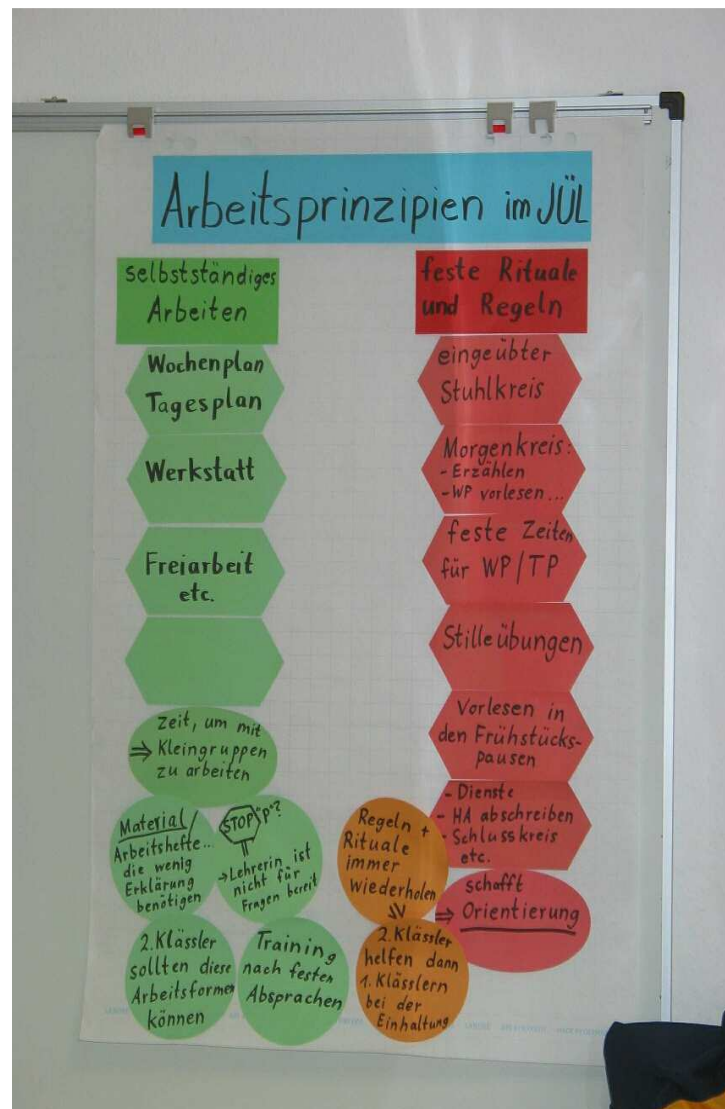 Arbeitsprinzipien im JÜL
selbstständiges
Arbeiten
Wochenplan
Tagesplan
Werkstatt
Freiarbeit
etc.
Zeit, um mit
⇒ Kleingruppen
zu arbeiten
Material/
Arbeitshefte...
die wenig
Erklärung
benötigen
STOP "p"?
→ Lehrerin ist
nicht für
Fragen bereit
2. Klässler
sollten diese
Arbeitsformen
können
Training
nach festen
Absprachen
feste Rituale
und Regeln
eingeübter
Stuhlkreis
Morgenkreis:
- Erzählen
- WP vorlesen...
feste Zeiten
für WP/TP
Stilleübungen
Vorlesen in
den Frühstücks-
pausen
- Dienste
- HA abschreiben
- Schlusskreis
etc.
schafft
⇒ Orientierung
Regeln +
Rituale
immer
Wiederholen
2. Klässler
helfen dann
1. Klässlern
bei der
Einhaltung